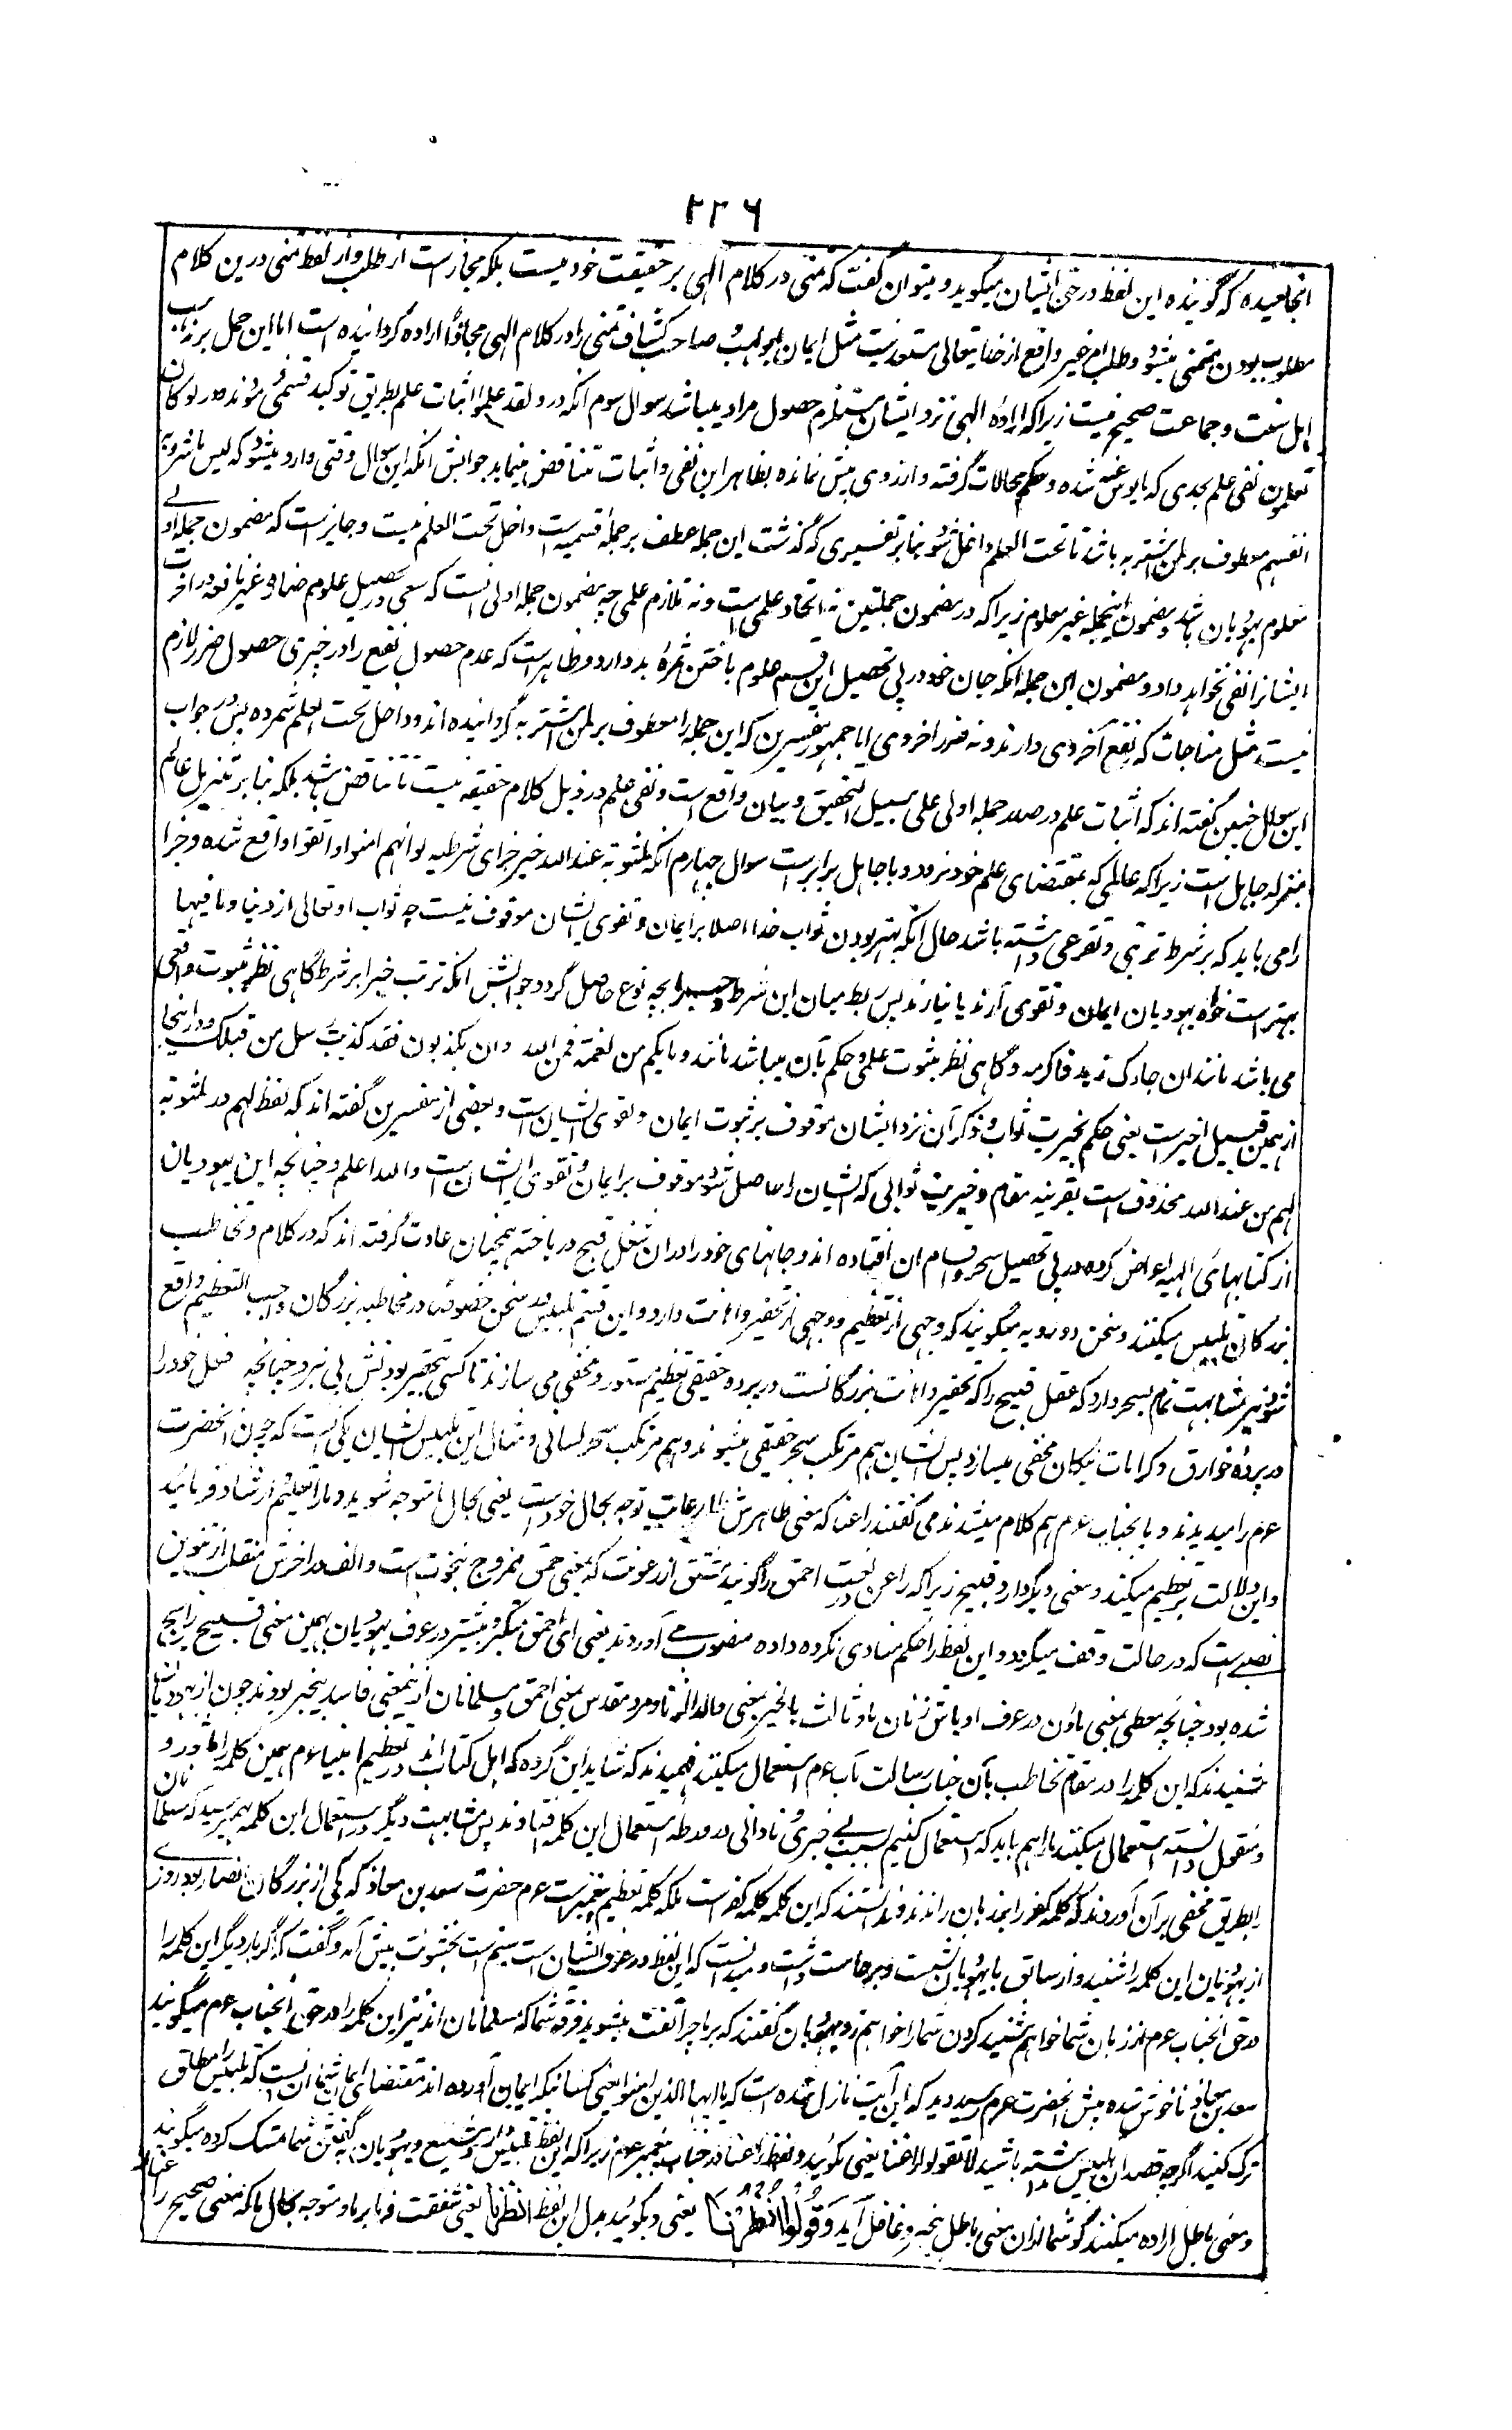 ۲۲۶
انجامیده که گوینده این لفظ در حق ایشان میگوید و میتوان گفت که تمنی در کلام الهی بر حقیقت خود نیست بلکه مجاز است از طلب و از لفظ تمنی درین کلام
مطلوب بودن متمنی میشود و طلب امر خیر واقع از خدا یتعالی مستبعد نیست مثل ایمان ابولهب و صاحب کشاف تمنی را در کلام الهی مجازا اراده گردانیده است اما این حمل بر مذاهب
اهل سنت و جماعت صحیح نیست زیرا که اراده الهی نزد ایشان مستلزم حصول مراد میباشد سوال سوم آنکه در و لقد علموا اثبات علم بطریق توکید قسمی نموده در لو کانوا
یعلمون نفی علم بحدی که مایوس عنه شده و حکم محالات گرفته و آرزوی بیش نمانده بظاهر این نفی و اثبات متناقض مینماید جوابش آنکه این سوال وقتی وارد میشود که لبئس ما شروا به
انفسهم معطوف بر لمن اشتریه باشد تا تحت العلم داخل شود بنا بر تفسیری که گذشت این جمله عطف بر جمله قسمیه است و داخل تحت العلم نیست و جایز است که مضمون جمله اولی
معلوم یهودیان باشد و مضمون اینجمله غیر معلوم زیرا که در مضمون جملتین نه اتحاد علمی است و نه تلازم علمی چه مضمون جمله اولی آنست که سعی در تحصیل علوم ضاره غیر نافعه در آخرت
ایشانرا نفعی نخواهد داد و مضمون این جمله آنکه جان خود در پی تحصیل این قسم علوم باختن ثمرهٔ بد دارد و ظاهر است که عدم حصول نفع را در خبری حصول ضرر لازم
نیست مثل مباحات که نه نفع اخروی دارند و نه ضرر اخروی اما جمهور مفسرین که این جمله را معطوف بر لمن اشتریه گردانیده اند و داخل تحت العلم شمرده پس در جواب
این سوال چنین گفته اند که اثبات علم در صدر جمله اولی علی سبیل التحقیق و بیان واقع است و نفی علم در ذیل کلام حقیقة نیست تا تناقض باشد بلکه بنا بر تنزیل عالم
بمنزله جاهل است زیرا که عالمی که بمقتضای علم خود نرود با جاهل برابر است سوال چهارم آنکه لمثوبة عند الله خیر جزای شرطیه لو انهم امنوا و اتقوا واقع شده و جزا
را می باید که بر شرط ترتبی و تفرعی داشته باشد حال آنکه بهتر بودن ثواب خدا اصلا بر ایمان و تقوی ایشان موقوف نیست چه ثواب او تعالی از دنیا و ما فیها
بهتر است خواه یهودیان ایمان و تقوی آرند یا نیارند پس ربط میان این شرط و جزا بچه نوع حاصل گردد جوابش آنکه ترتب جزا بر شرط گاهی نظر بثبوت واقعی
می باشد مانند ان جاءک زید فاکرمه و گاهی نظر بثبوت علمی و حکم بآن میباشد مانند و ما بکم من نعمة فمن الله و ان یکذبوک فقد کذبت رسل من قبلک و در اینجا
از همین قبیل اخیر است یعنی حکم بخیریت ثواب و ذکر آن نزد ایشان موقوف بر ثبوت ایمان و تقوی ایشان است و بعضی از مفسرین گفته اند که لفظ لهم در لمثوبة
لهم من عند الله محذوف است بقرینه مقام و خیریت ثوابی که ایشان را حاصل شود موقوف بر ایمان و تقوی ایشان است و الله اعلم و چنانچه این یهودیان
از کتابهای الهیه اعراض کرده در پی تحصیل سحر و اقسام آن افتاده اند و جانهای خود را در آن شغل قبیح درباخته همچنان عادت گرفته اند که در کلام و تخاطب
بزرگان تلبیس میکنند و سخن دو رویه میگویند که وجهی از تعظیم و وجهی از تحقیر و اهانت دارد و این قسم تلبیس در سخن خصوصا در مخاطبه بزرگان واجب التعظیم واقع
شود نیز مشابهت تمام بسحر دارد که عقل قبیح را که تحقیر و اهانت بزرگانست در پرده حقیقی تعظیم مستور و مخفی می سازند تا کسی بتحقیر بودنش پی نبرد چنانچه فعل خود را
در پردهٔ خوارق و کرامات نیکان مخفی میسازد پس ایشان هم مرتکب سحر حقیقی میشوند و هم مرتکب سحر لسانی و مثال این تلبیس ایشان یکی آنست که چون آنحضرت
عم را میدیدند و با آنجناب عم هم کلام میشدند می گفتند راعنا که معنی ظاهرش طلب رعایت توجه بحال خود است یعنی بحال ما متوجه شوید و ما را تعلیم و ارشاد فرمائید
و این دلالت بر تعظیم میکند و معنی دیگر دارد قبیح زیرا که راعن در لغت احمق را گویند مشتق از رعونت که بمعنی حمق ممزوج بنخوت است و الف در آخرش منقلب از تنوین
نصبی است که در حالت وقف میگردد و این لفظ را حکم منادی نکره داده منصوب می آوردند یعنی ای احمق متکبر و بیشتر در عرف یهودیان بهمین معنی قبیح رایج
شده بود چنانچه معطی بمعنی مأون در عرف اوباش زنان باد ثالث بالخیر بمعنی ولد الزنا و مرد مقدس بمعنی احمق و مسلمانان از ینمعنی فاسد بیخبر بودند چون از یهودیان
شنیدند که این کلمه را در مقام تخاطب بآن جناب رسالت مآب عم استعمال میکنند فهمیدند که شاید این گروه که اهل کتاب اند در تعظیم انبیا عم همین کلمه را ماثور و
منقول دانسته استعمال میکنند ما را هم باید که استعمال کنیم بسبب بی خبری و نادانی در ورطه استعمال این کلمه افتادند پس مشابهت دیگر در استعمال این کلمه بهم رسید که مسلمانان
را بطریق مخفی بر آن آوردند که کلمه کفر را بر زبان رانند و ندانستند که این کلمه کلمه کفر است بلکه کلمه تعظیم پیغمبر است عم حضرت سعد بن معاذ که یکی از بزرگان انصار بود روزی
از یهودیان این کلمه را شنید و از سابق با یهودیان نشست و برخاست داشت و میدانست که این لفظ در عرف ایشان است سیم است بخشونت پیش آمد و گفت که اگر بار دیگر این کلمه را
در حق آنجناب عم از زبان شما خواهم شنید گردن شما را خواهم زد یهودیان گفتند که بر ما چرا آشفته میشوید فرقه شما که مسلمانان اند نیز این کلمه را در حق آنجناب عم میگویند
سعد بن معاذ ناخوش شده پیش آنحضرت عم رسید دید که این آیت نازل شده است که یا ایها الذین امنوا یعنی کسانیکه ایمان آورده اند مقتضای ایمان شما آنست که تلبیس را مطلق
ترک کنید اگرچه قصد آن تلبیس نداشته باشید لا تقولوا راعنا یعنی نگوئید و لفظ راعنا در جناب پیغمبر عم زیرا که این لفظ تلبیس دارد شنیع و یهودیان بگفتن شما تمسک کرده میگویند راعنا
و معنی باطل اراده میکنند گو شما از ان معنی باطل بیخبر و غافل آید وَقُولُوا انْظُرْنَا یعنی و بگوئید بدل این لفظ انظرنا یعنی شفقت فرما بر ما و متوجه بحال ما که معنی صحیح را